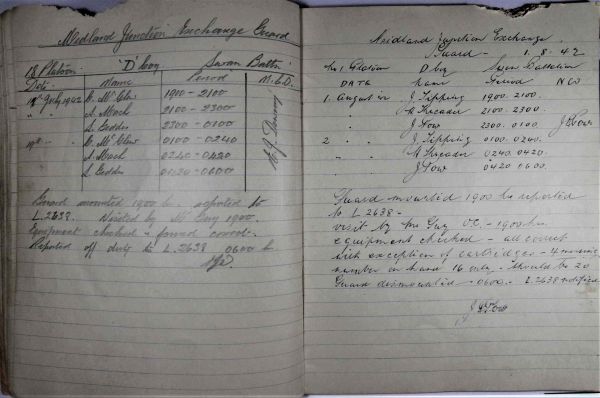 Midland Junction Exchange Guard
18 Platoon 'D' Coy Swan Battn
Date Name Period N.C.O.
18th July 1942 1900 - 2100
" " A. Mach 2100 - 2300
L. Geddes 2300 - 0100
19th 0100 - 0240
A. Mach 0240 - 0420
L. Geddes 0420 - 0600
Guard mounted 1900 h. reported to
L.2638. Visited by Mr Guy 1900.
Equipment checked & found correct.
Reported off duty to L.2638 0600 h.
Midland Junction Exchange
Guard - 1. 8. 42
No 1 Platoon D Coy Swan Battalion
DATE Name Period NCO
1. August 42 J Tipping 1900. 2100.
2100. 2300.
J Fow 2300. 0100. J Fow
2 " J. Tipping 0100. 0240.
0240. 0420.
J Fow 0420. 0600.
Guard mounted 1900 hr reported
to L. 2638 -
visit by Mr Guy O.C. - 1900 hr.
equipment checked - all correct
with exception of cartridges - 4 missing
number on hand 16 only - should be 20
Guard dismounted - 0600 - L.2638 notified
J Fow